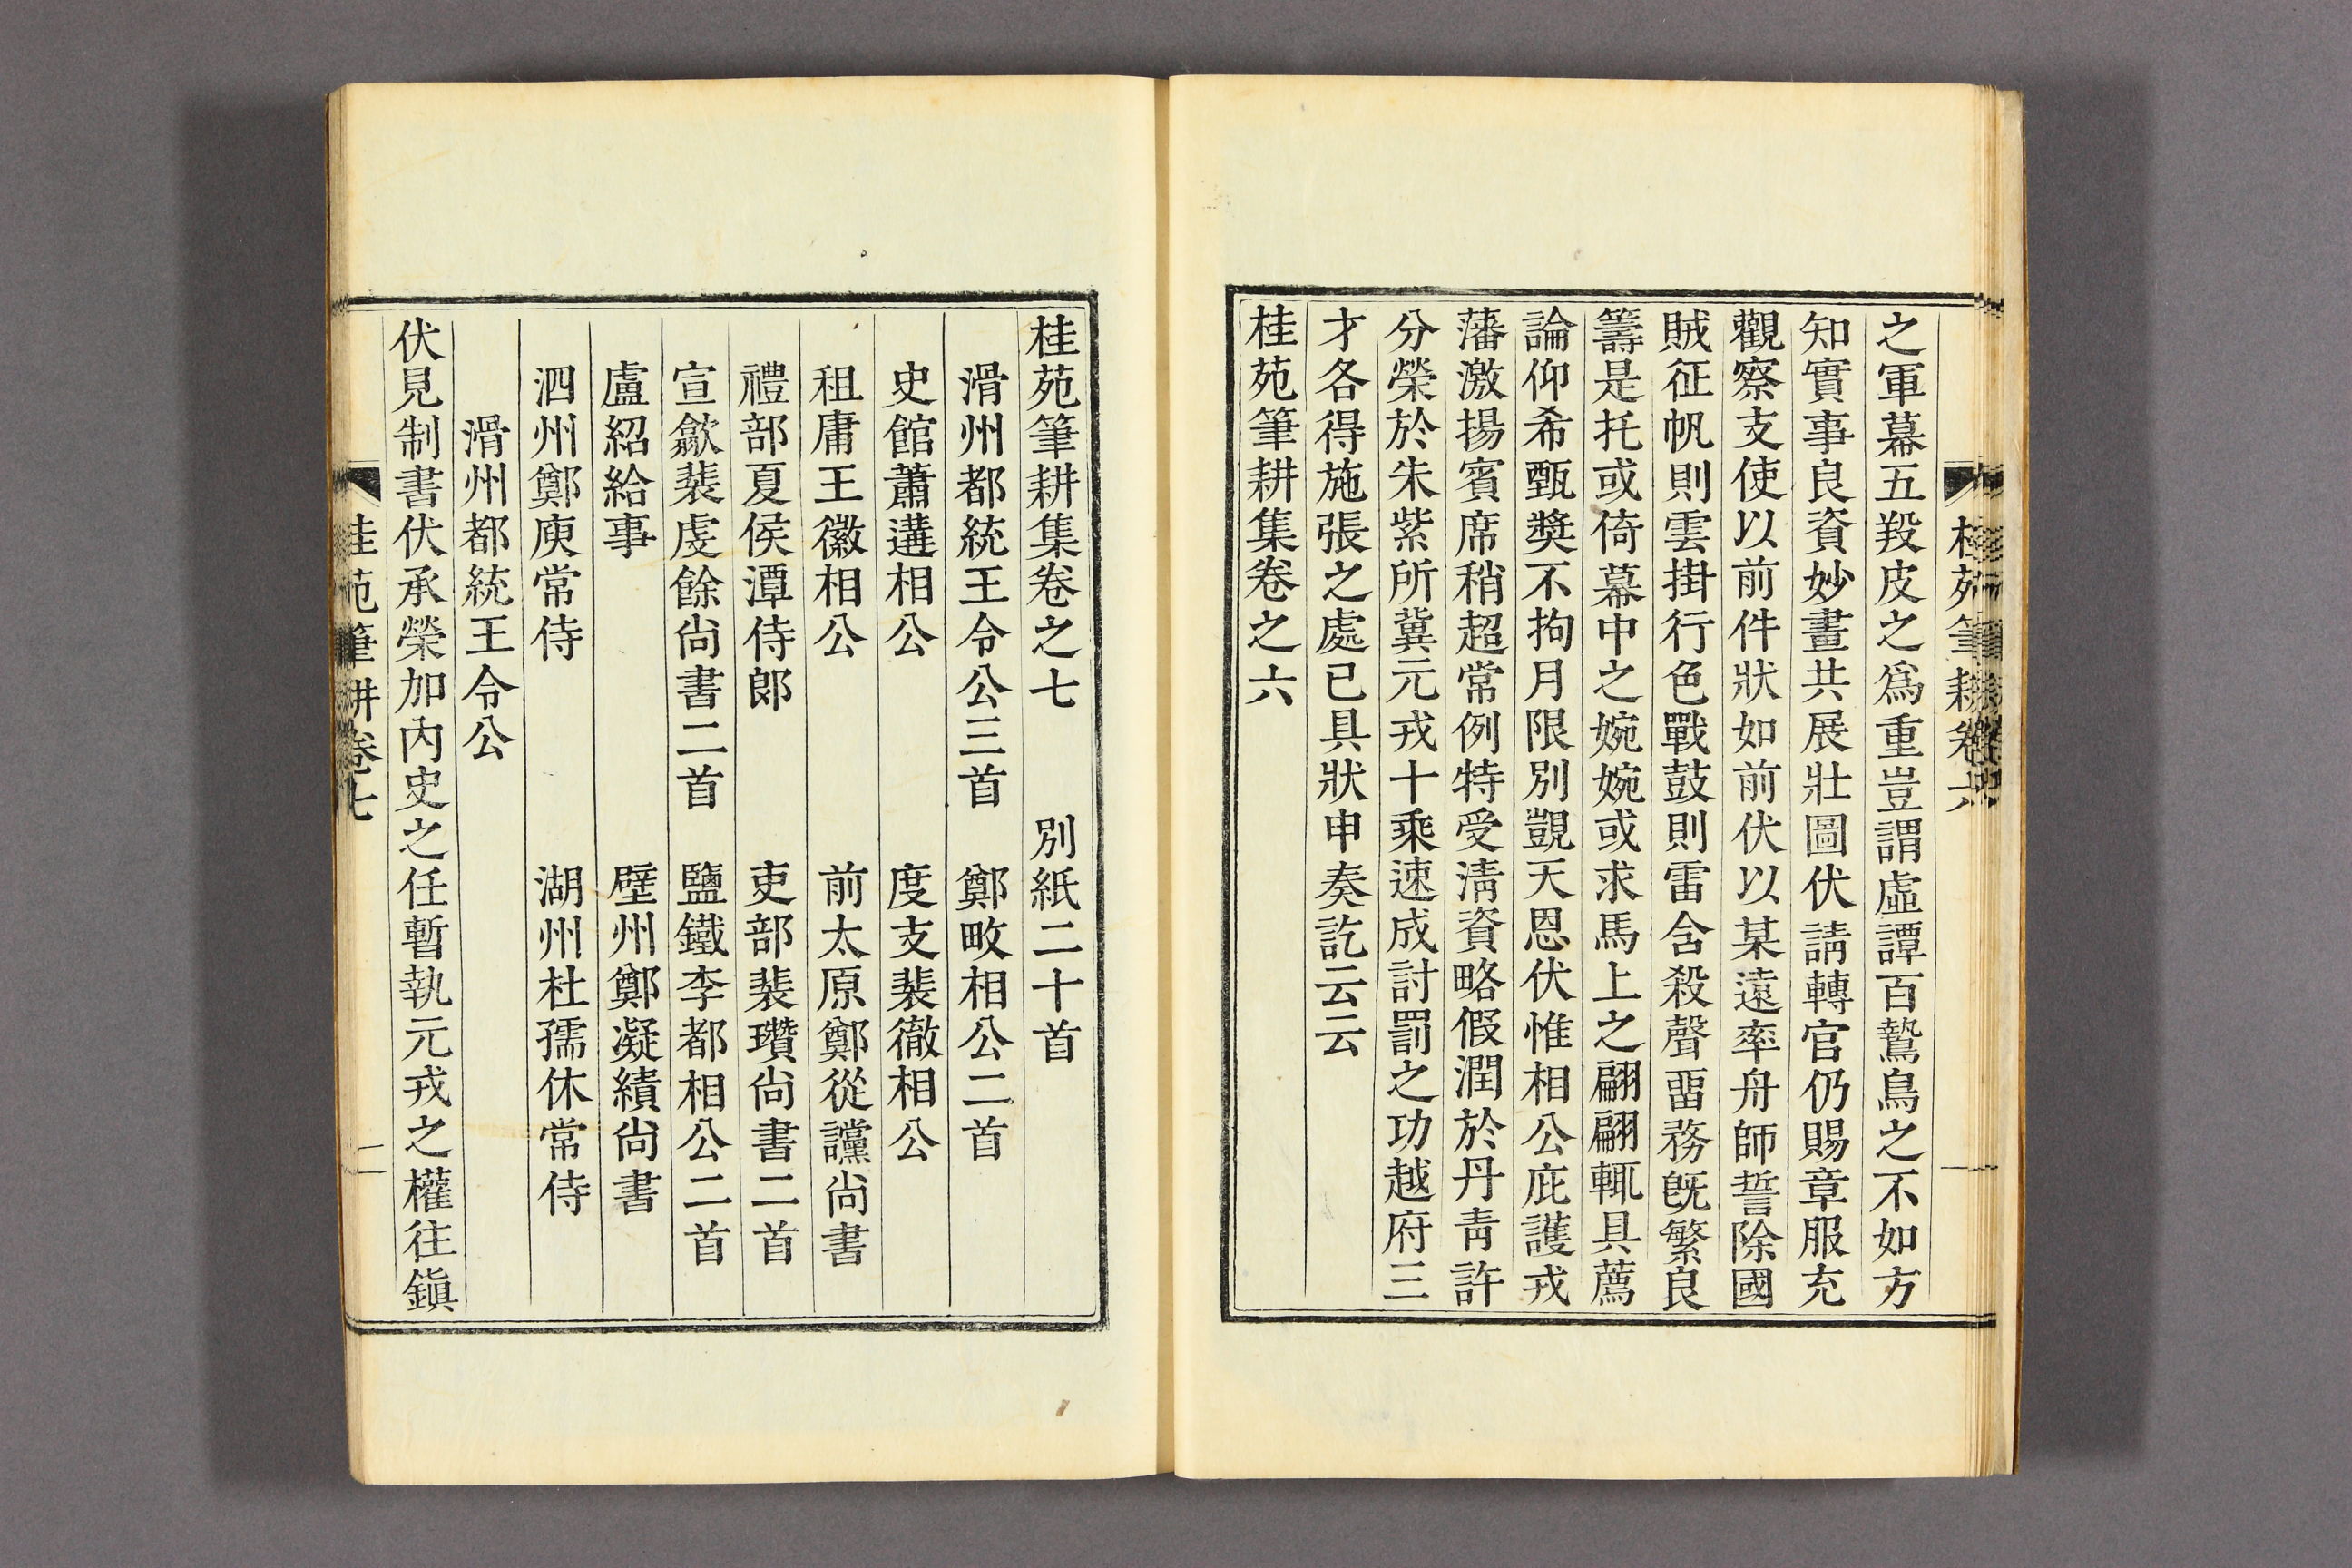 之軍幕五羖皮之爲重豈謂虛譚百鷙鳥之不如方
知實事良資妙畫共展壯圖伏請轉官仍賜章服充
觀察支使以前件狀如前伏以某遠率舟師誓除國
賊征帆則雲掛行色戰鼓則雷含殺聲畱務旣繁良
籌是托或倚幕中之婉婉或求馬上之翩翩輒具薦
論仰希甄奬不拘月限別覬天恩伏惟相公庇護戎
藩激揚賓席稍超常例特受淸資略假潤於丹靑許
分榮於朱紫所冀元戎十乘速成討罰之功越府三
才各得施張之處已具狀申奏訖云云
桂苑筆耕集卷之六
桂苑筆耕集卷之七 別紙二十首
滑州都統王令公三首 鄭畋相公二首
史館蕭遘相公 度支裴徹相公
租庸王徽相公 前太原鄭從讜尙書
禮部夏侯潭侍郞 吏部裴瓚尙書二首
宣歙裴虔餘尙書二首 鹽鐵李都相公二首
盧紹給事 壁州鄭凝績尙書
泗州鄭庾常侍 湖州杜孺休常侍
滑州都統王令公
伏見制書伏承榮加內史之任暫執元戎之權往鎭
桂苑筆耕卷七